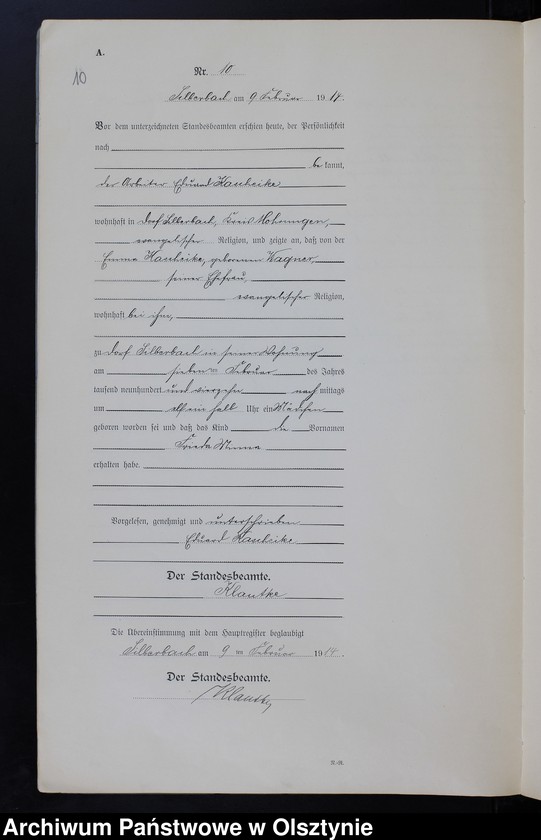 A.
10
Nr. 10
Silberbach am 9 Februar 1914.
Vor dem unterzeichneten Standesbeamten erschien heute, der Persönlichkeit
nach
be kannt,
der Arbeiter Eduard
wohnhaft in Dorf Silberbach, Kreis Mohrungen,
evangelischer Religion, und zeigte an, daß von der
Emma geborenen Wagner,
seiner Ehefrau,
evangelischer Religion,
wohnhaft bei ihm,
zu Dorf Silberbach in seiner Wohnung
am sieben ten Februar des Jahres
tausend neunhundert und vierzehn nach mittags
um elf ein halb Uhr ein Mädchen
geboren worden sei und daß das Kind die Vornamen
Frieda Minna
erhalten habe.
Vorgelesen, genehmigt und unterschrieben
Eduard
Der Standesbeamte.
Klautke
Die Übereinstimmung mit dem Hauptregister beglaubigt
Silberbach am 9 ten Februar 1914.
Der Standesbeamte.
Klautke
Archiwum Państwowe w Olsztynie